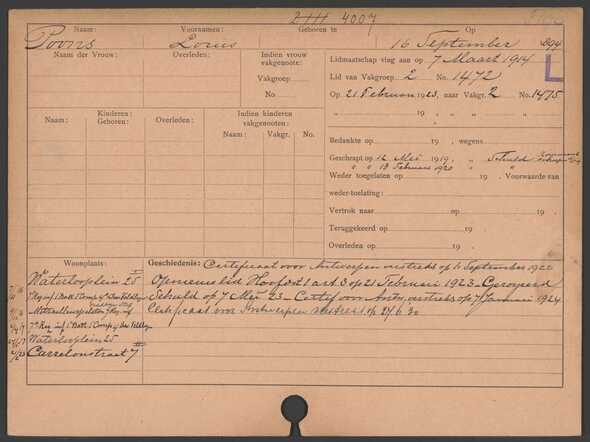 2111 4007
Naam: Voornamen: Geboren te Op
Poons Louis 16 September 1894
Naam der Vrouw: Overleden: Indien vrouw vakgenoote: Lidmaatschap ving aan op 7 Maart 1914 L
Vakgroep Lid van Vakgroep 2 No. 1472
No. Op 21 Februari 1923, naar Vakgr. 2 No. 1475
„ 19 , „ „ „ „
Naam: Kinderen: Geboren: Overleden: Indien kinderen vakgenooten:
Naam: Vakgr. No.
Bedankte op 19 , wegens
Geschrapt op 12 Mei 1919, „ Schuld
„ „ 18 Februari 1920 „
Weder toegelaten op 19 . Voorwaarde van
weder-toelating:
Vertrok naar op 19
Teruggekeerd op 19
Overleden op 19 .
Woonplaats: Geschiedenis: Certificaat voor Antwerpen verstrekt op 1 September 1920
Waterlooplein 25 II Opnieuw lid Hoofdst 1 art. 3 op 21 Februari 1923 – Geroyeerd
Schuld op 7 Mei 23 – Certif voor Antw. verstrekt op 7 Januari 1924
Certificaat voor Antwerpen verstrekt op 27/6 30
Waterlooplein 25
Carrelonstraat 7 III